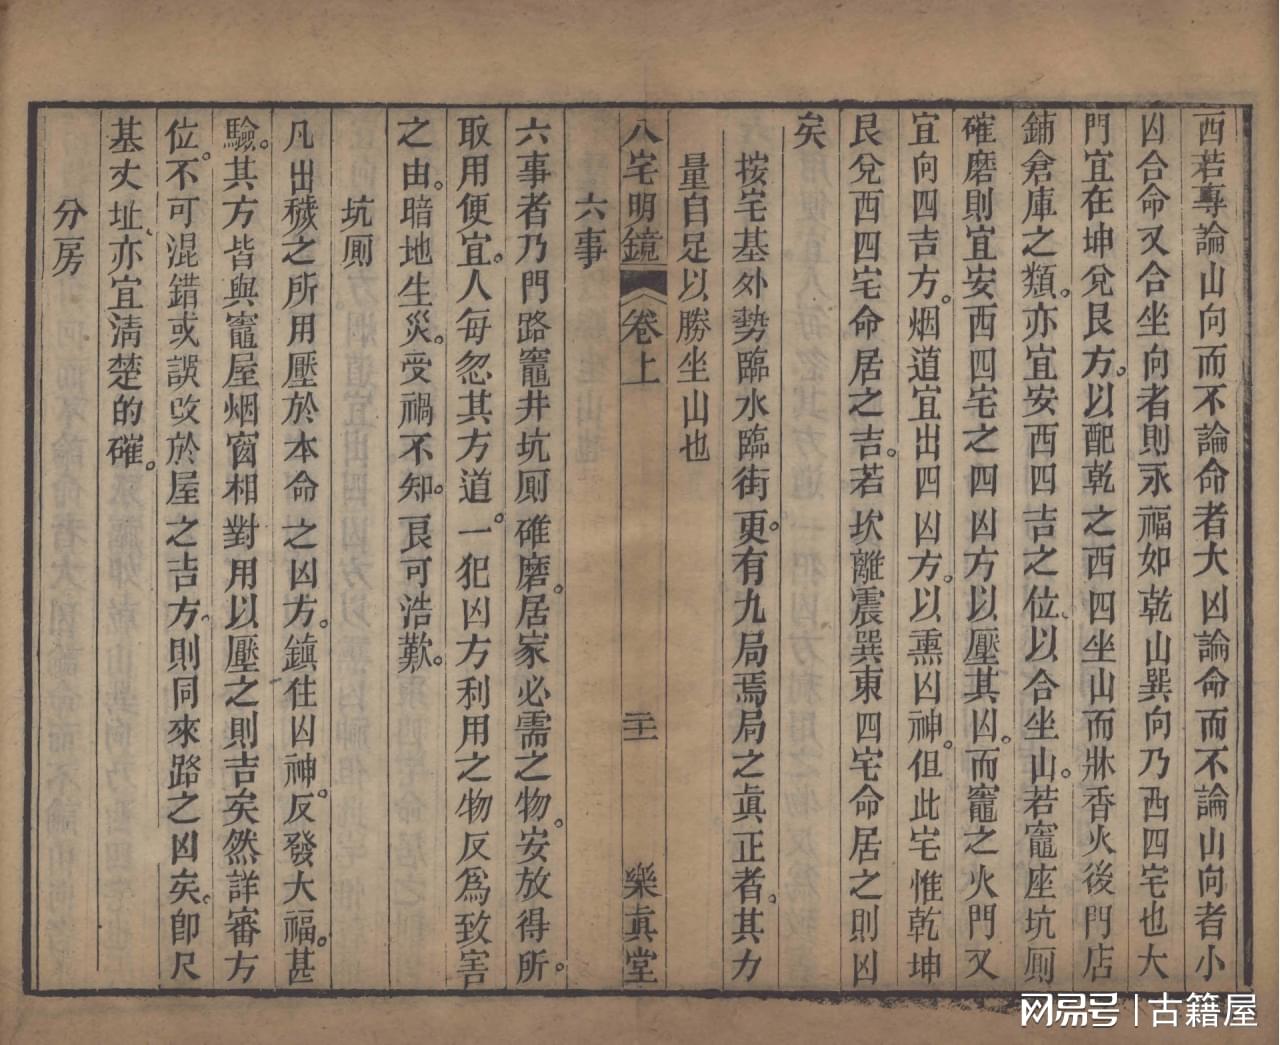 西若專論山向而不論命者大凶論命而不論山向者小
凶合命又合坐向者則永福如乾山巽向乃西四宅也大
門宜在坤兌艮方。以配乾之西四坐山而牀香火後門店
鋪倉庫之類。亦宜安西四吉之位。以合坐山。若竈座坑厠
碓磨則宜安西四宅之四凶方以壓其凶。而竈之火門又
宜向四吉方。烟道宜出四凶方。以熏凶神。但此宅惟乾坤
艮兌西四宅命居之吉。若坎離震巽東四宅命居之則凶
矣
按宅基外勢臨水臨街更。有九局焉局之眞正者。其力
量自足以勝坐山也
八宅明鏡 卷上 二十一 樂眞堂
六事
六事者乃門路竈井坑厠碓磨。居家必需之物。安放得所。
取用便宜。人每忽其方道。一犯凶方利用之物反爲致害
之由。暗地生災。受禍不知。良可浩歎。
坑厠
凡出穢之所用壓於本命之凶方。鎮住凶神。反發大福。甚
驗。其方皆與竈屋烟窗相對用以壓之則吉矣然詳審方
位。不可混錯或誤改於屋之吉方。則同來路之凶矣。卽尺
基丈址亦宜淸楚的確。
分房
网易号 | 古籍屋